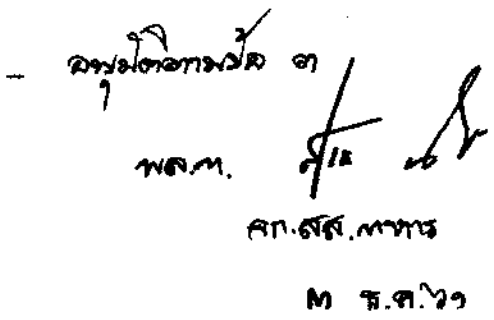 - อนุมัติตามข้อ ๓
พล.ท.
จก.สส.ทหาร
๓ ธ.ค. ๖๑